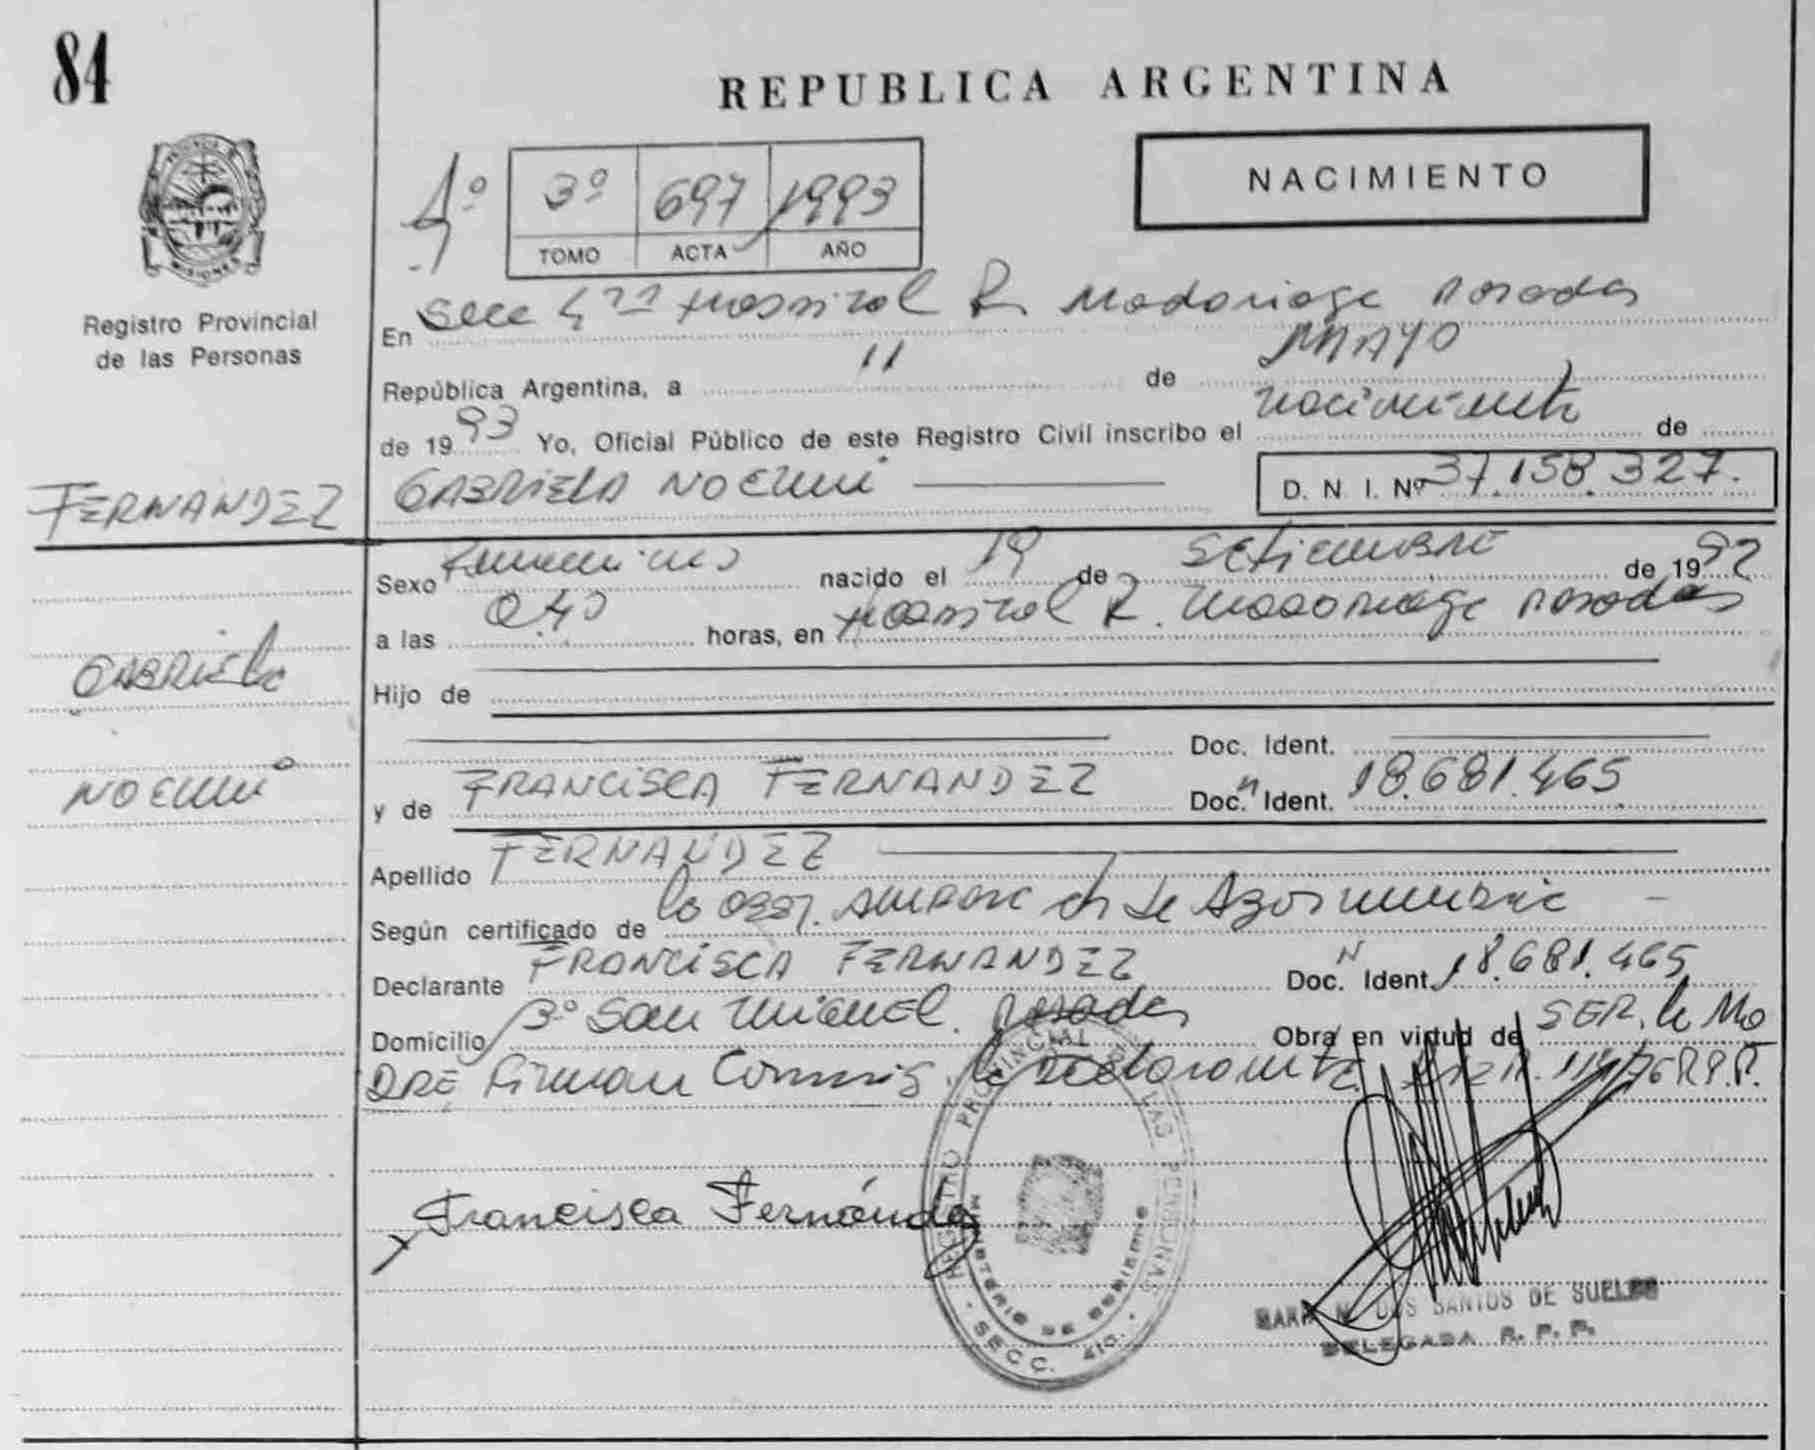 84
REPUBLICA ARGENTINA
NACIMIENTO
4º 3º 697 1993
TOMO ACTA AÑO
MISIONES
Registro Provincial
de las Personas
En Secc 4ta Hospital R. Madariaga Posadas
República Argentina, a 11 de MAYO
de 1993 Yo, Oficial Público de este Registro Civil inscribo el nacimiento de
FERNANDEZ GABRIELA NOEMI D. N. I. Nº 37.158.327.
Sexo Femenino nacido el 19 de SETIEMBRE de 1992
a las 0.40 horas, en Hospital R. Madariaga Posadas
GABRIELA
Hijo de
Doc. Ident.
NOEMI
y de FRANCISCA FERNANDEZ Doc. Ident. 18.681.465
Apellido FERNANDEZ
Según certificado de la
Declarante FRANCISCA FERNANDEZ Doc. Ident. 18.681.465
Domicilio Bº San Miguel. Posadas Obra en virtud de SER. la MA
DRE Firman Conmig. la Declarante. R.P.P.
Francisca Fernández
REGISTRO PROVINCIAL DE LAS PERSONAS
MINISTERIO DE GOBIERNO
SECC. 4ta.
DOS SANTOS DE
DELEGADA R. P. P.